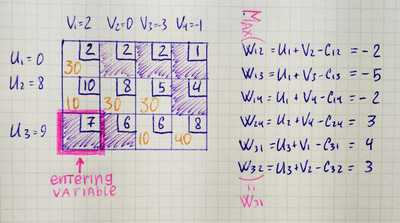 V₁=2 V₂=0 V₃=-3 V₄=-1
U₁=0
2 2 2 1
30
U₂=8
10 8 5 4
10 30 30
U₃=9
7 6 6 8
10 40
entering
variable
Max
W₁₂ = U₁+V₂-C₁₂ = -2
W₁₃ = U₁+V₃-C₁₃ = -5
W₁₄ = U₁+V₄-C₁₄ = -2
W₂₄ = U₂+V₄-C₂₄ = 3
W₃₁ = U₃+V₁-C₃₁ = 4
W₃₂ = U₃+V₂-C₃₂ = 3
=
W₃₁